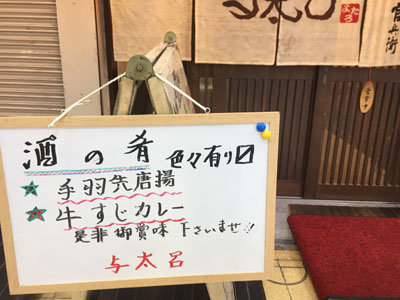 酒の肴 色々有り〼
手羽先唐揚
牛すじカレー
是非御賞味下さいませ!!
与太呂
営業中